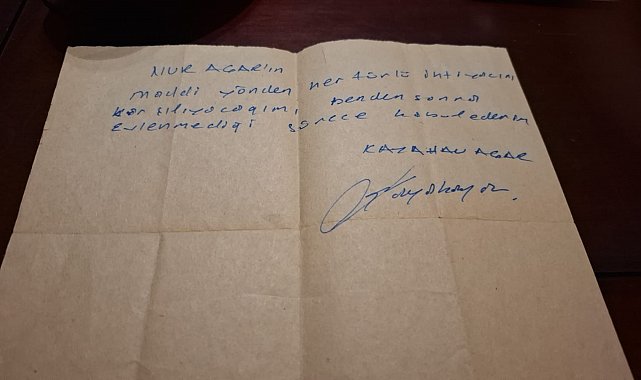 NUR AGAR'ın
maddi yönden her türlü ihtiyacını
karşılıyacağımı, benden sonra
Evlenmediği sürece kabul ederim
KAYAHAN AGAR